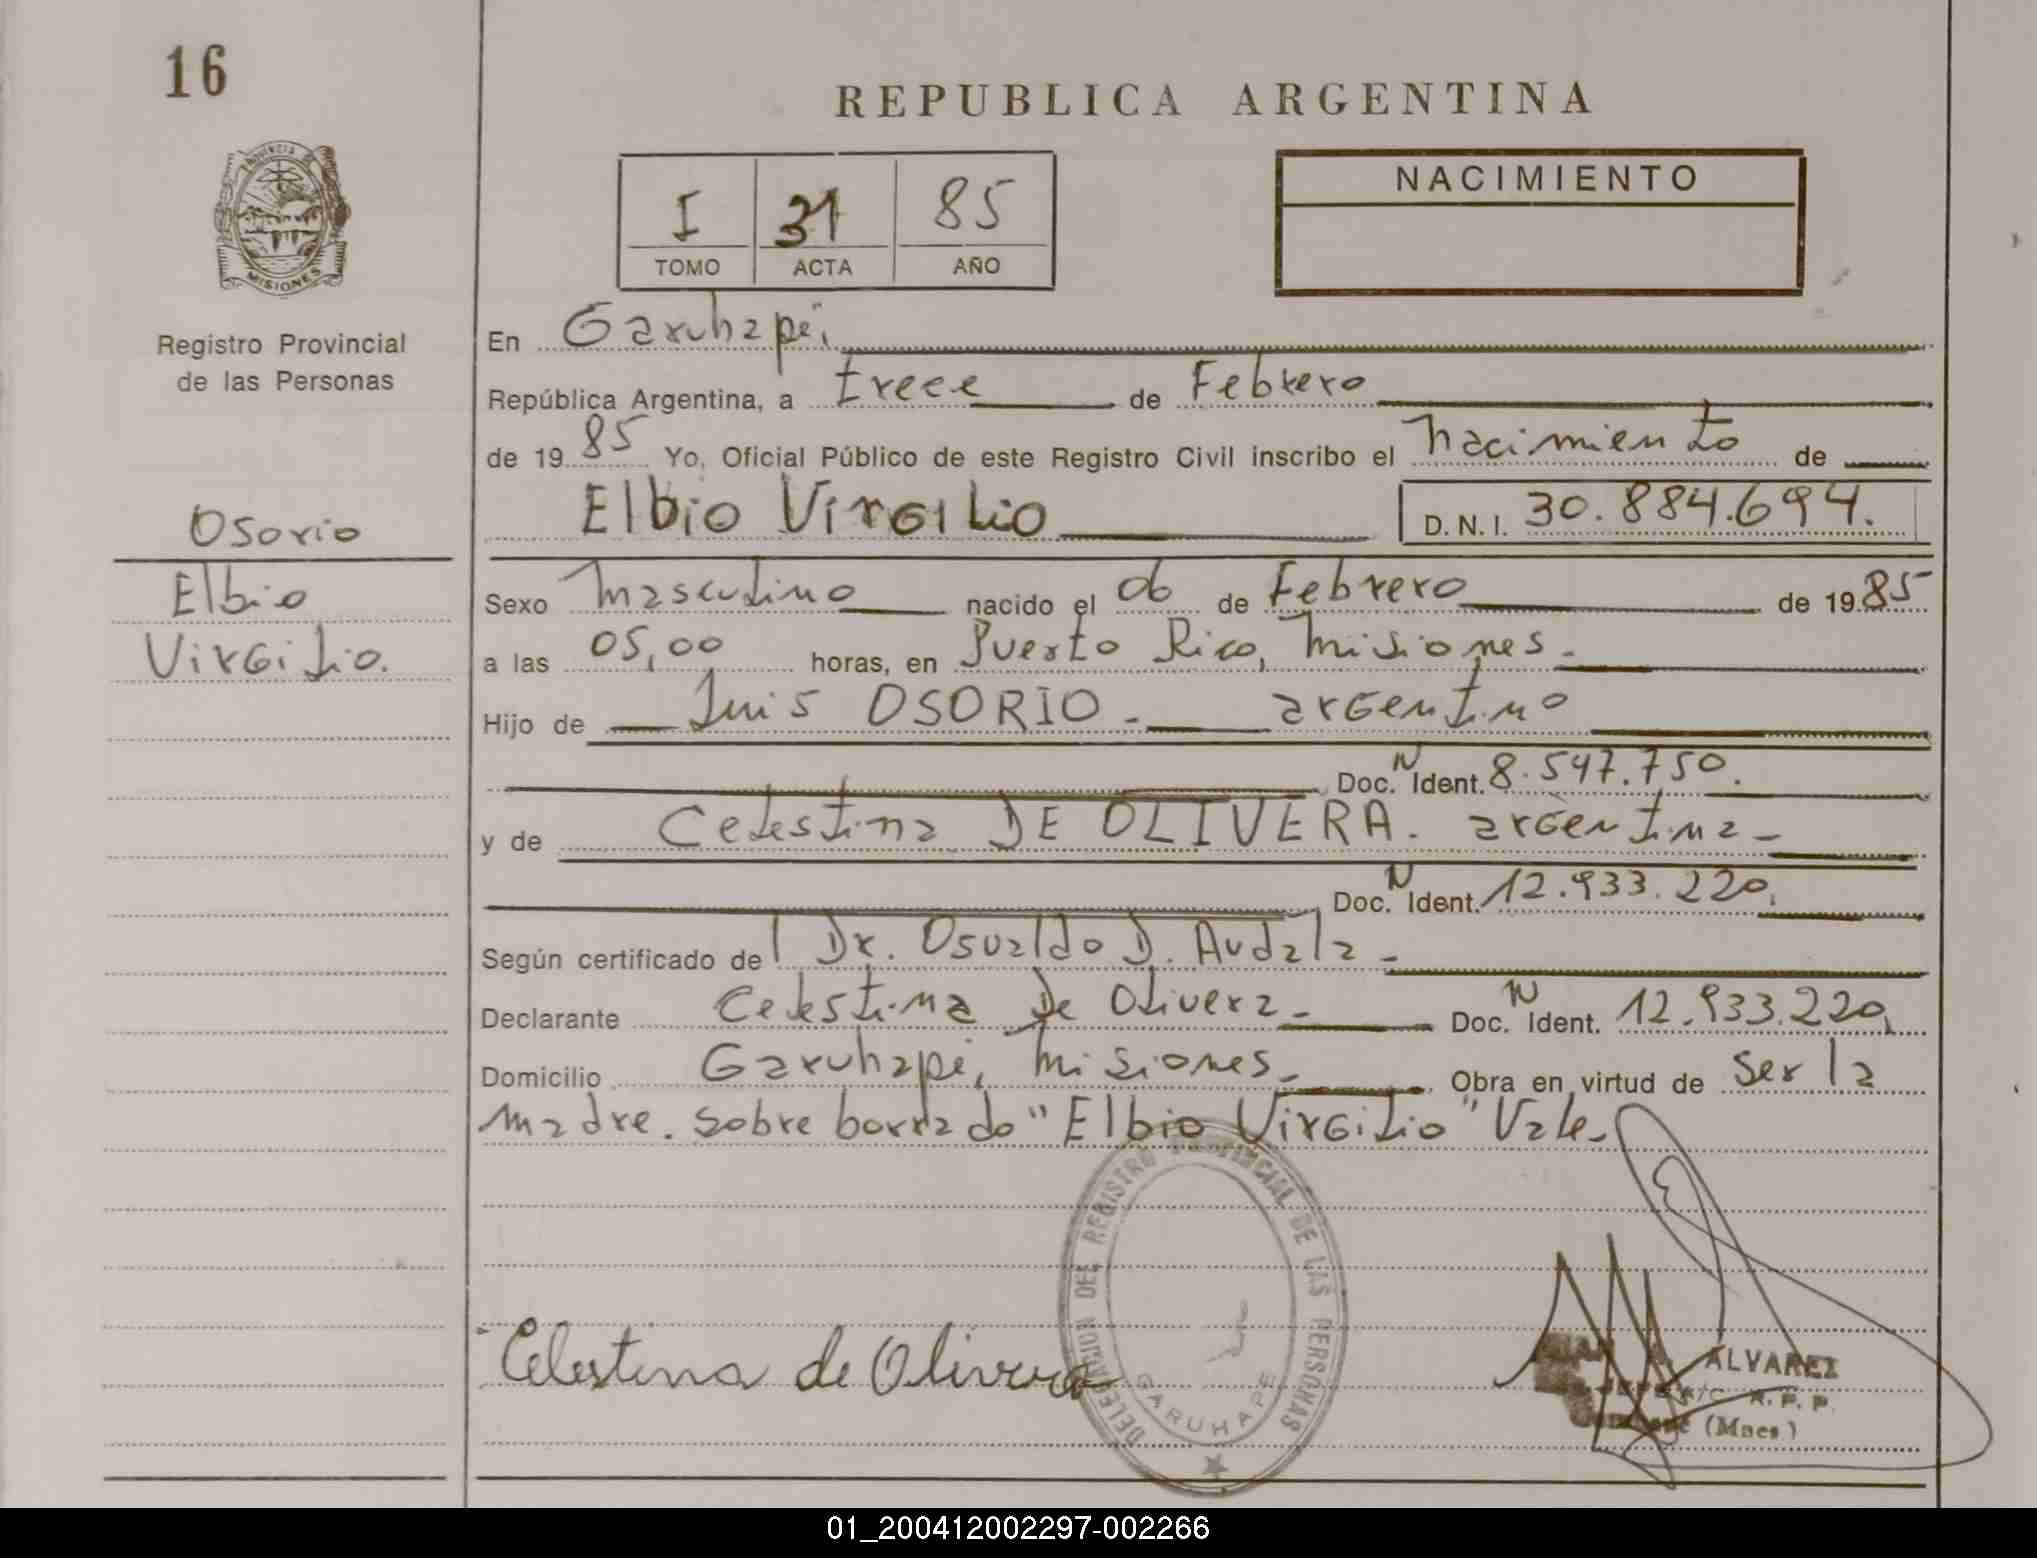 16
REPUBLICA ARGENTINA
PROVINCIA DE
MISIONES
Registro Provincial
de las Personas
I 31 85
TOMO ACTA AÑO
NACIMIENTO
En Garuhapé,
República Argentina, a trece de Febrero
de 1985 Yo, Oficial Público de este Registro Civil inscribo el nacimiento de
Elbio Virgilio D.N.I. 30.884.694.
Osorio
Elbio
Virgilio.
Sexo masculino nacido el 06 de Febrero de 1985
a las 05,00 horas, en Puerto Rico, Misiones.
Hijo de Luis OSORIO - argentino
Doc. N Ident. 8.547.750.
y de Celestina DE OLIVERA. argentina -
Doc. N Ident. 12.933.220.
Según certificado del Dr. Osvaldo D. Audala -
Declarante Celestina De Olivera - Doc. N Ident. 12.933.220,
Domicilio Garuhapé, Misiones - Obra en virtud de ser la
madre. Sobre borrado "Elbio Virgilio" Vale -
DELEGACION DEL REGISTRO PROVINCIAL DE LAS PERSONAS
GARUHAPE
Celestina de Olivera
ALVAREZ
JEFE A/C R. P. P.
(Mnes)
01_200412002297-002266